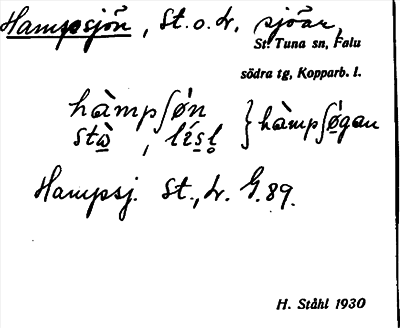 Hampsjön, St. o. L. sjöar,
St. Tuna sn, Falu
södra tg, Kopparb. l.
hàmpʃǿn } hàmpʃǿgan
stà̱, lís̱l̥
Hampsj. St., L. G. 89.
H. Ståhl 1930